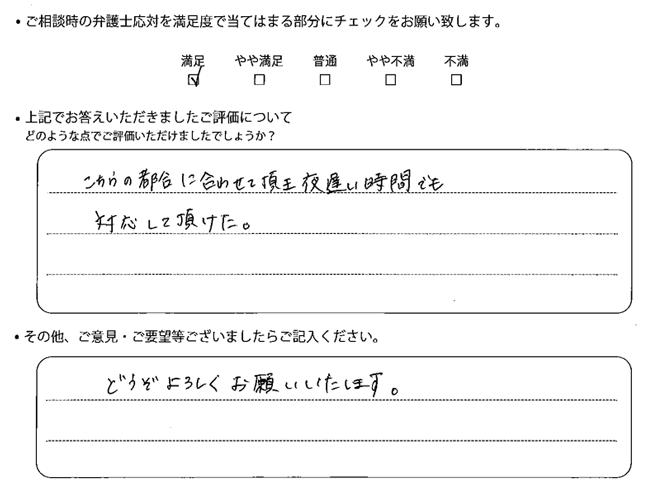 ・ご相談時の弁護士応対を満足度で当てはまる部分にチェックをお願い致します。
満足 やや満足 普通 やや不満 不満
☑ □ □ □ □
・上記でお答えいただきましたご評価について
どのような点でご評価いただけましたでしょうか？
こちらの都合に合わせて頂き夜遅い時間でも
対応して頂けた。
・その他、ご意見・ご要望等ございましたらご記入ください。
どうぞよろしくお願いいたします。